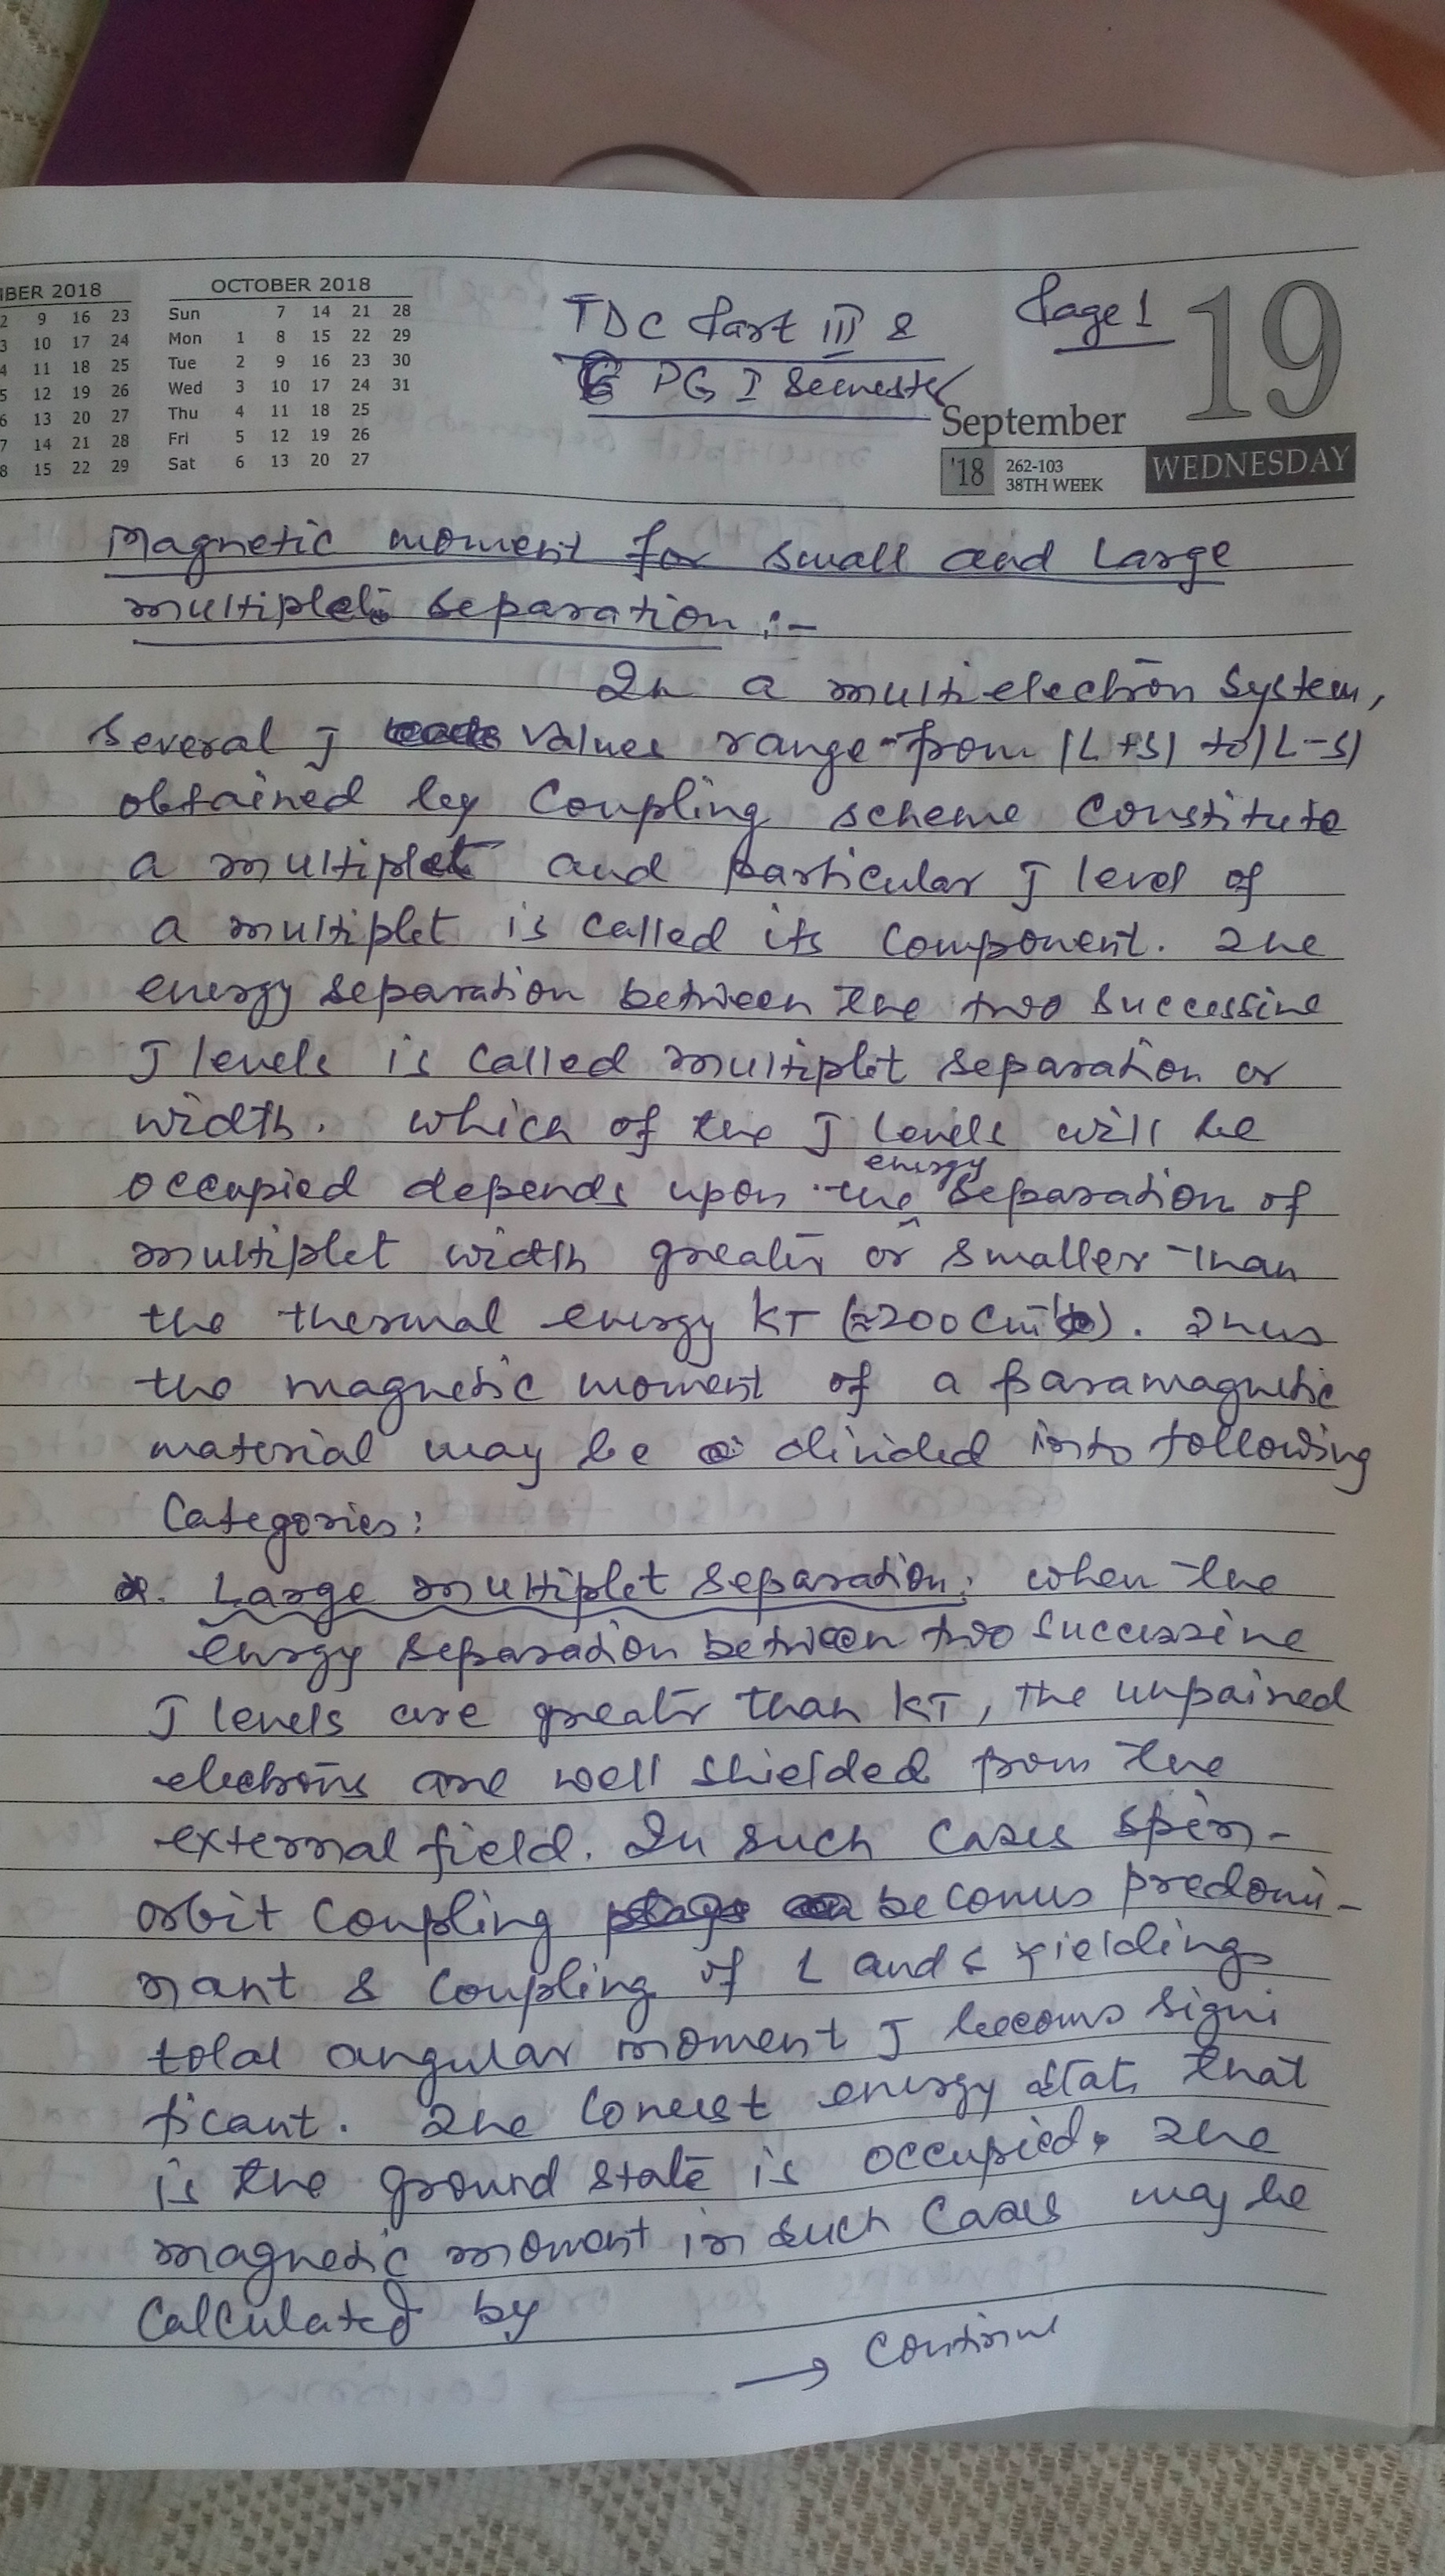 MBER 2018
2 9 16 23
3 10 17 24
4 11 18 25
5 12 19 26
6 13 20 27
7 14 21 28
8 15 22 29
OCTOBER 2018
Sun 7 14 21 28
Mon 1 8 15 22 29
Tue 2 9 16 23 30
Wed 3 10 17 24 31
Thu 4 11 18 25
Fri 5 12 19 26
Sat 6 13 20 27
TDC Part III &
PG I Semester
Page 1
19
September
'18
262-103
38TH WEEK
WEDNESDAY
Magnetic moment for small and Large
multiplet separation :-
In a multielectron system,
Several J values range from |L+S| to |L-S|
obtained by Coupling scheme Constitute
a multiplet and particular J level of
a multiplet is called its component. The
energy separation between the two successive
J levels is called multiplet separation or
width. which of the J levels will be
occupied depends upon the energy separation of
multiplet width greater or smaller than
the thermal energy KT (≈200 Cm⁻¹). Thus
the magnetic moment of a paramagnetic
material may be divided into following
Categories:
Large multiplet separation: when the
energy separation between two successive
J levels are greater than KT, the unpaired
electrons are well shielded from the
external field. In such cases spin-
orbit coupling becomes predomi-
nant & coupling of L and S yieldings
total angular moment J becoms signi
ficant. The lowest energy state that
is the ground state is occupied. The
magnetic moment in such Cases may be
Calculated by
→ Continue